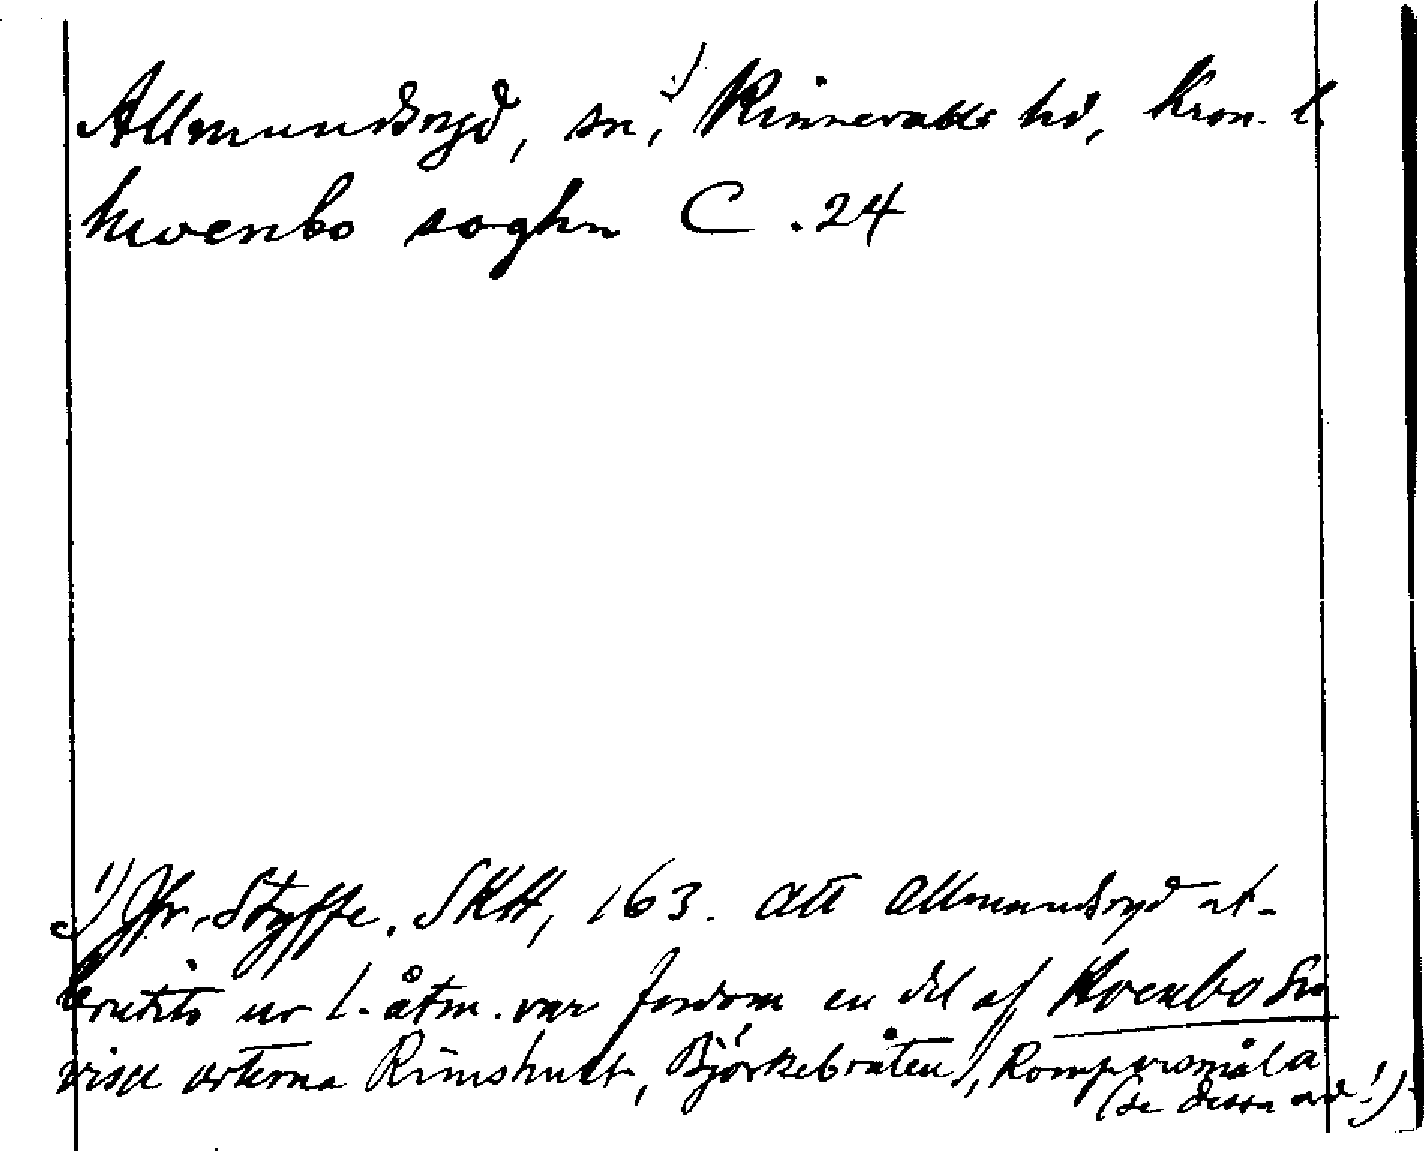 Allmundsryd, sn,¹) Kinnevalds hd, Kron. l.
hwenbo soghn C .24
¹) Jfr. Styffe, SKH, 163. att Allmundsryd ut-
brutits ur l. åtm. var fordom en del af Hvenbo Sn
visa orterna Rimshult, Björkebråten), Rompersmåla
(se dessa ord!)